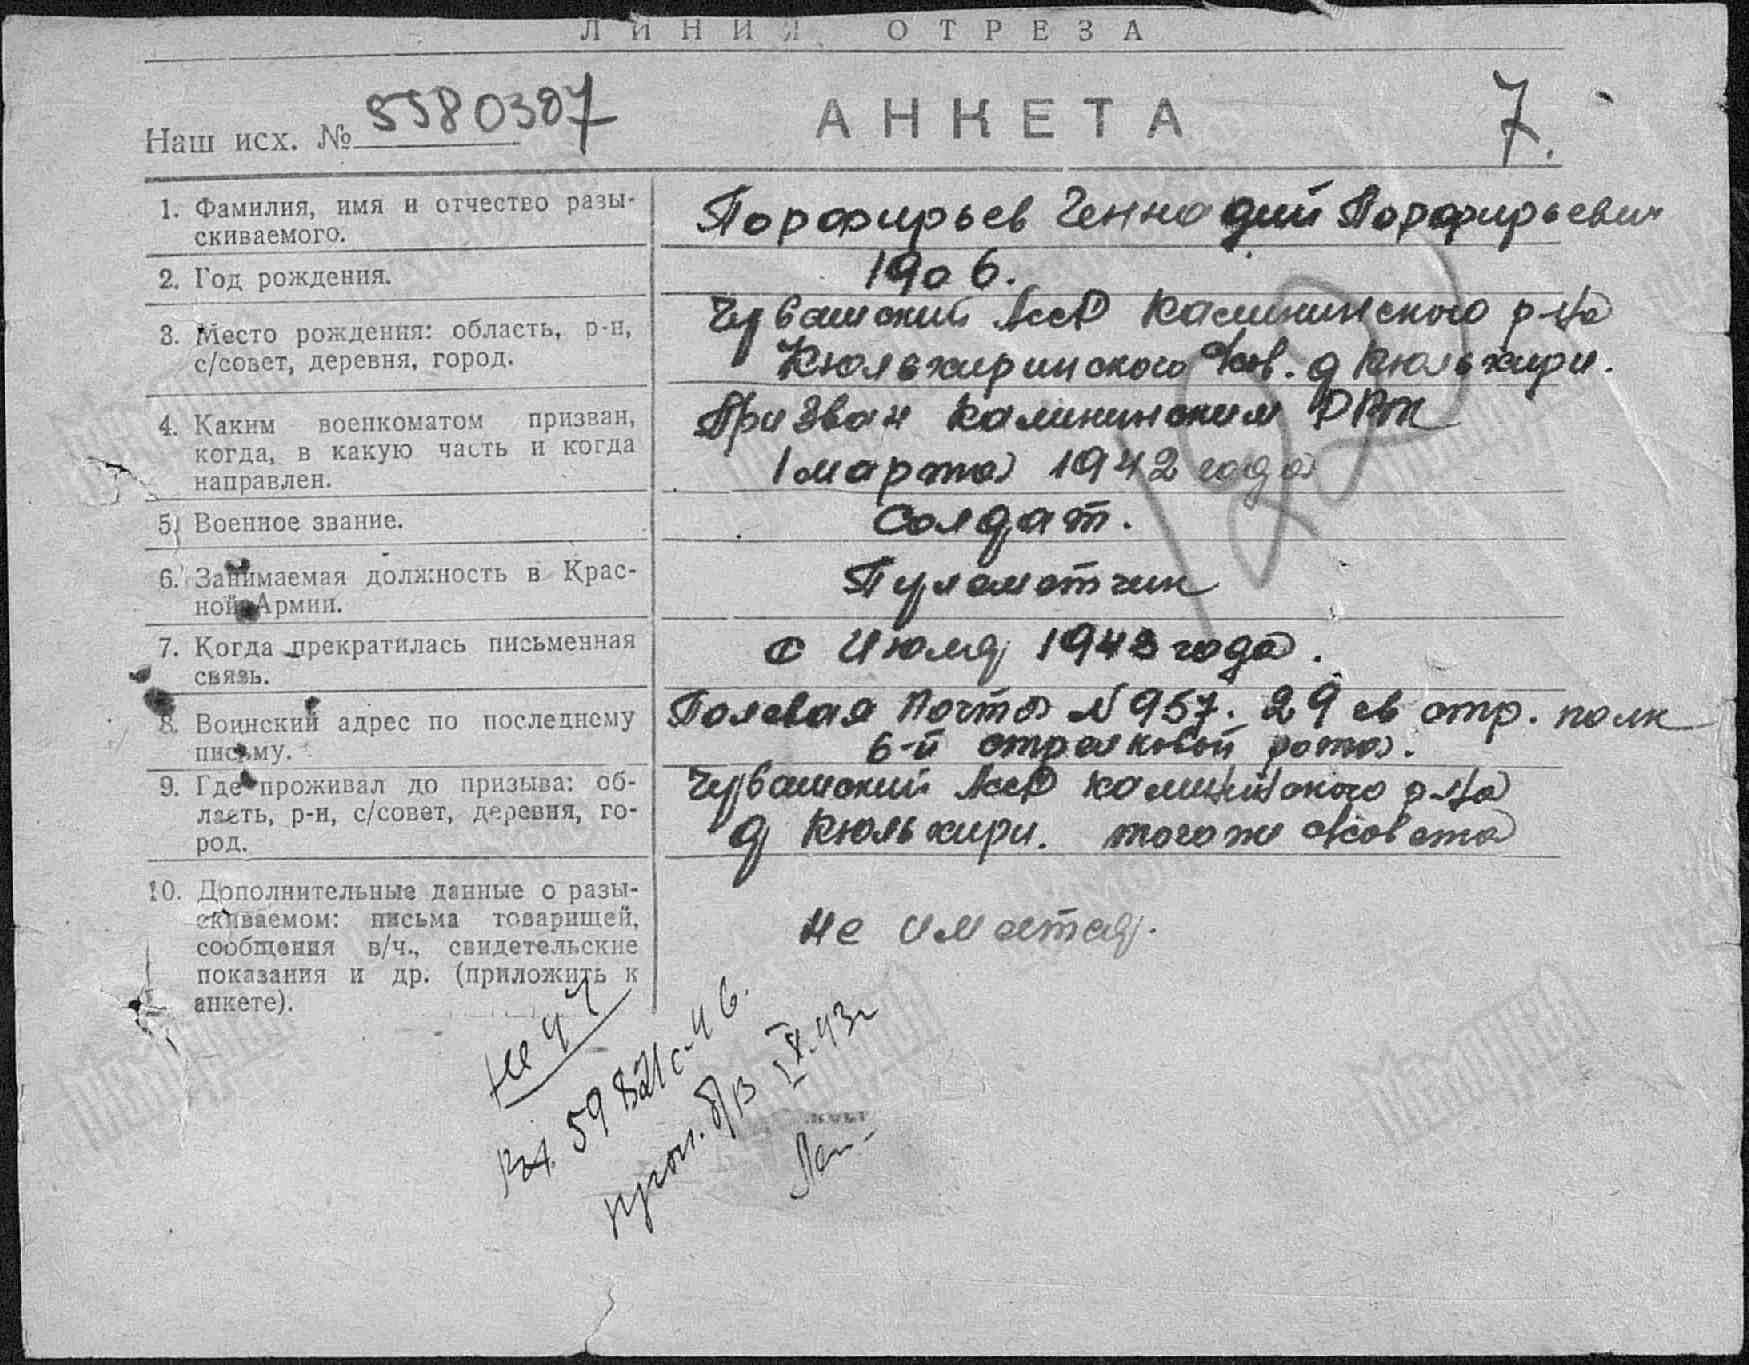 ЛИНИЯ ОТРЕЗА
Наш исх. № 5580307
АНКЕТА
7.
1. Фамилия, имя и отчество разы-
скиваемого.
Порфирьев Геннадий Порфирьевич
2. Год рождения.
1906.
3. Место рождения: область, р-н,
с/совет, деревня, город.
Чувашский АССР Калининского р-на
Кюльхиринского с/сов. д Кюльхири.
4. Каким военкоматом призван,
когда, в какую часть и когда
направлен.
Призван Калининским РВК
1 марта 1942 года
5. Военное звание.
Солдат.
6. Занимаемая должность в Крас-
ной Армии.
Пулеметчик
7. Когда прекратилась письменная
связь.
с Июля 1943 года.
8. Воинский адрес по последнему
письму.
Полевая Почта N 957. 29 св стр. полк
6-й стрелковой рота.
9. Где проживал до призыва: об-
ласть, р-н, с/совет, деревня, го-
род.
Чувашский АССР Калининского р-на
д Кюльхири. того же с/совета
10. Дополнительные данные о разы-
скиваемом: письма товарищей,
сообщения в/ч., свидетельские
показания и др. (приложить к
анкете).
Не имеется.
проп. б/в IX.43г
Мемориал